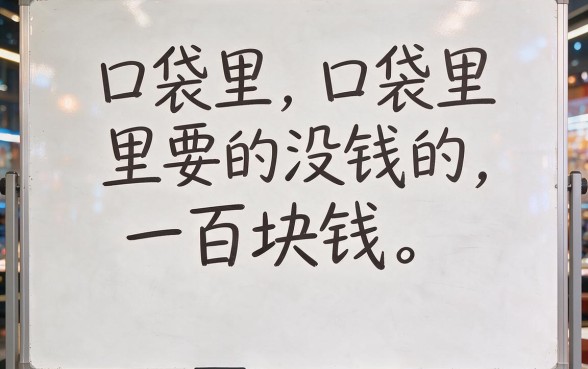 口袋里，口袋里
里要的没钱的，
一百块钱。